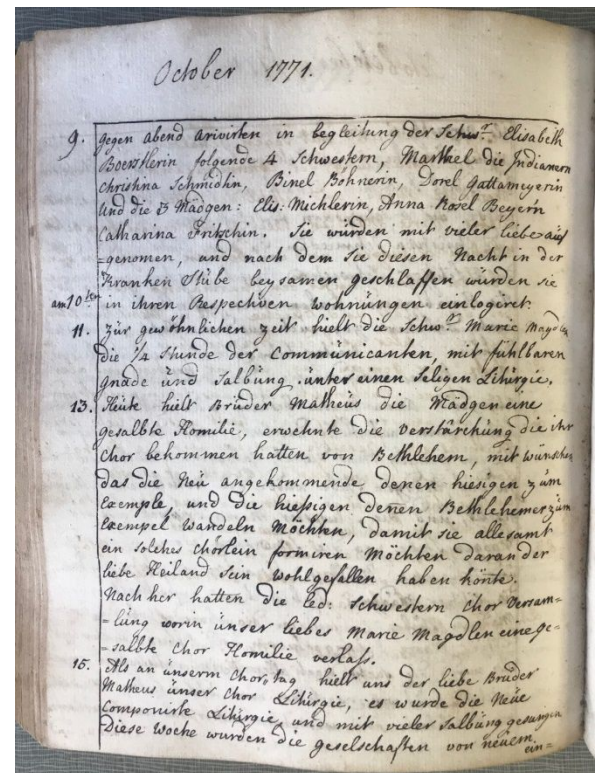 October 1771.
9. gegen abend arivirten in begleitung der Schwr. Elisabeth
Boerstlerin folgende 4 Schwestern, Marthel die Indianern
Christina Schmidtin, Binel Böhnerin, Dorel Gattamyerin
und die 3 Mädgen: Elis: Michlerin, Anna Rosel Beyern
Catharina Fritschin. Sie würden mit vieler liebe auf
=genomen, und nach dem Sie diesen Nacht in der
Kranken Stübe beysamen geschlaffen würden sie
am 10ten in ihren Respectiven wohnüngen einlogiret.
11. Zür gewöhnlichen zeit hielt die Schwr. Marie Magdlen
die 1/4 Stunde der Communicanten, mit fühlbaren
gnade und Salbüng. ünter einen Seligen Litürgie.
13. Heüte hielt Brüder Matheüs die Mädgen eine
gesalbte Homilie, erwehnte die verstärckung die ihr
Chor bekommen hatten von Bethlehem, mit wünschen
das die Neü angekommende, denen hiesigen züm
Exemple, und die hießigen denen Bethlehemer züm
Exempel wandeln Möchten, damit sie allesamt
ein solches Chörlein formiren Möchten daran der
liebe Heiland Sein wohlgefallen haben könte.
Nach her hatten die led: Schwestern Chor Versam=
=lüng worin ünser liebes Marie Magdlen eine ge=
=salbte Chor Homilie verlass.
15. Als an ünserm Chor tag hielt uns der liebe Brüder
Matheus ünser Chor Litürgie, es wurde die Neüe
Componirte Litürgie, und mit vieler Salbüng gesungen
Diese Woche wurden die geselschaften von neüem ein=